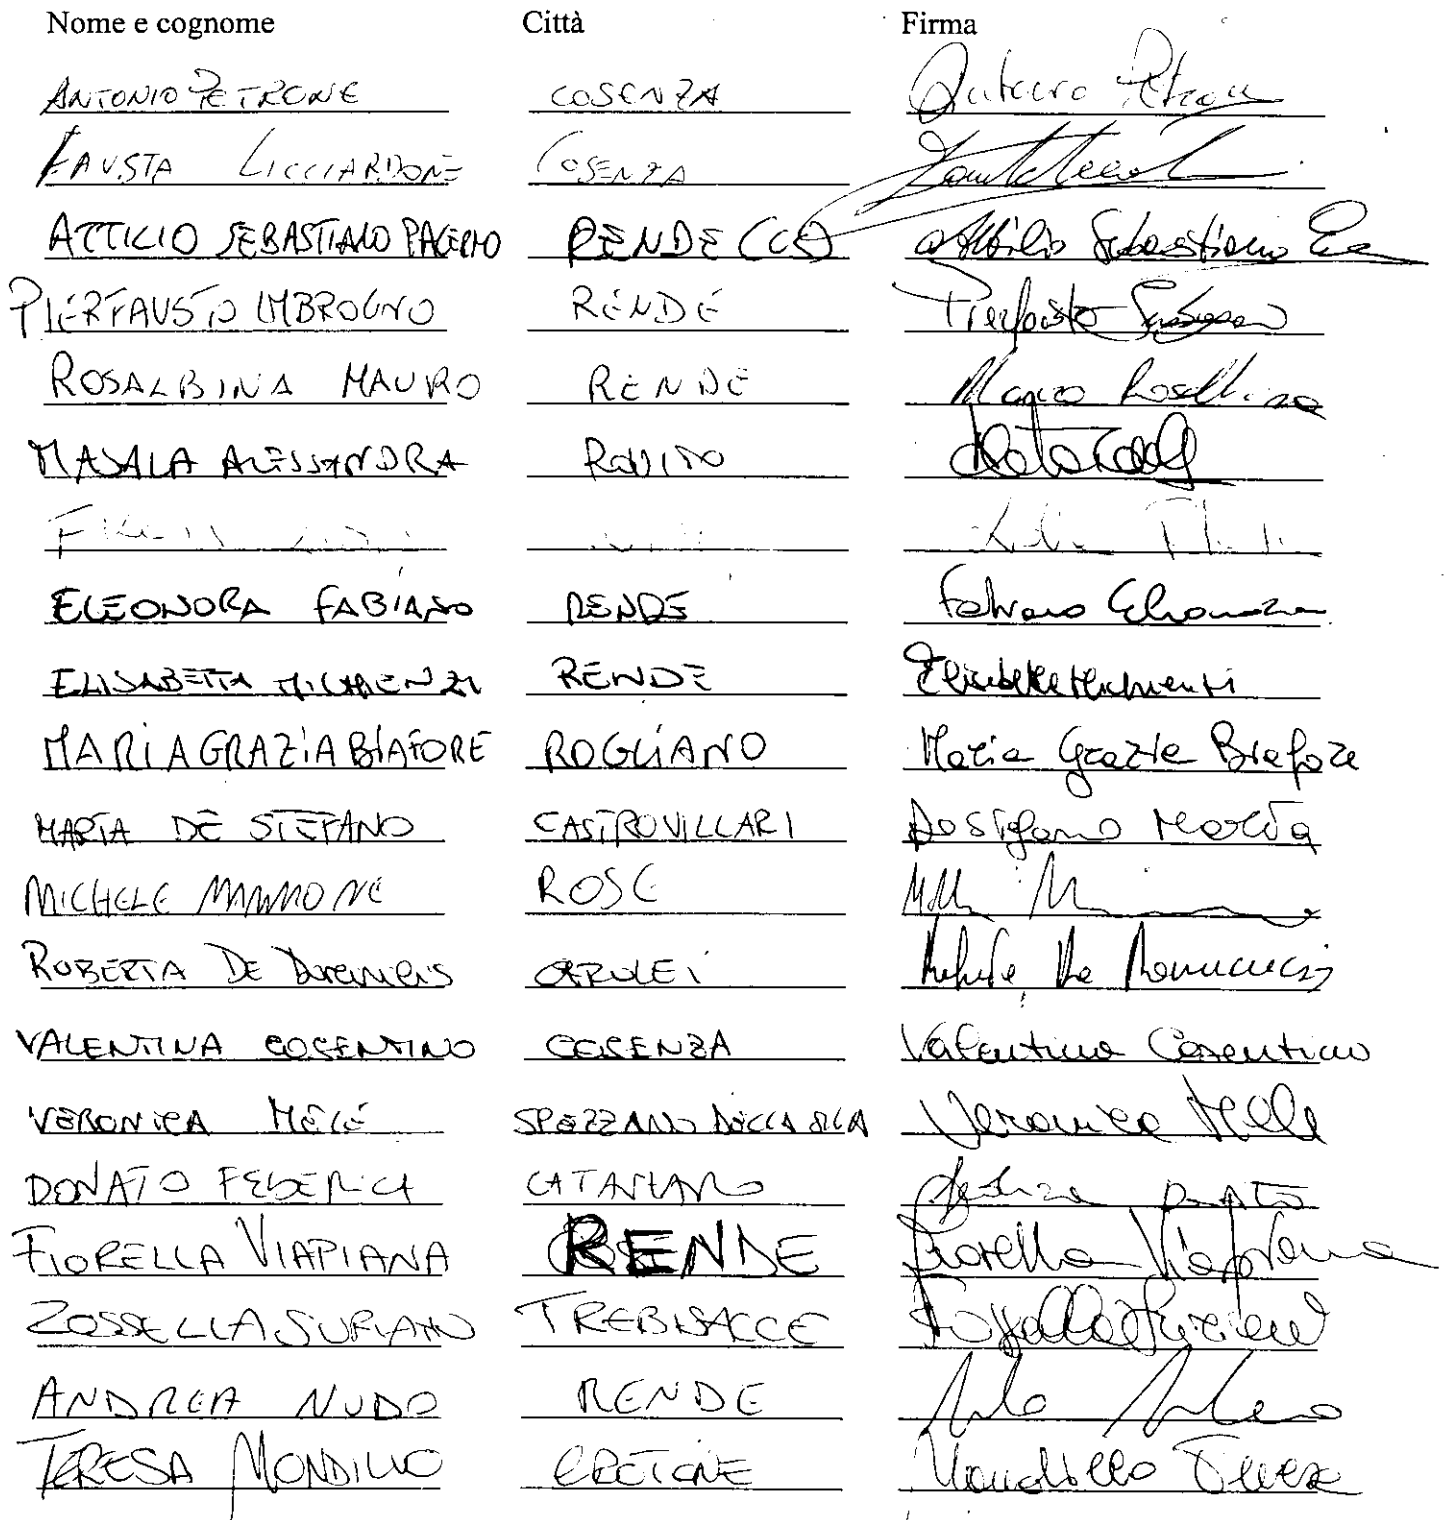 Nome e cognome Città Firma
ANTONIO PETRONE COSENZA Antonio Petrone
FAUSTA LICCIARDONE COSENZA
ATTILIO SEBASTIANO PALERMO RENDE (CS) Attilio Sebastiano
PIERFAUSTO IMBROGNO RENDE Pierfausto Imbrogno
ROSALBINA MAURO RENDE Mauro Rosalbina
MASALA ALESSANDRA ROVITO
ELEONORA FABIANO RENDE Fabiano Eleonora
ELISABETTA MICHIENZI RENDE Elisabetta Michienzi
MARIA GRAZIA BIAFORE ROGLIANO Maria Grazia Biafore
MARTA DE STEFANO CASTROVILLARI De Stefano Marta
MICHELE MAMMONE ROSE
ROBERTA DE CEROLEI Roberta De
VALENTINA COSENTINO COSENZA Valentina Cosentino
VERONICA MELE SPEZZANO DELLA SILA Veronica Mele
DONATO FEDERICA Federica Donato
FIORELLA VIAPIANA RENDE Fiorella Viapiana
ROSSELLA SURIANO TREBISACCE Rossella Suriano
ANDREA NUDO RENDE
TERESA MONDILLO CROTONE Mondillo Teresa